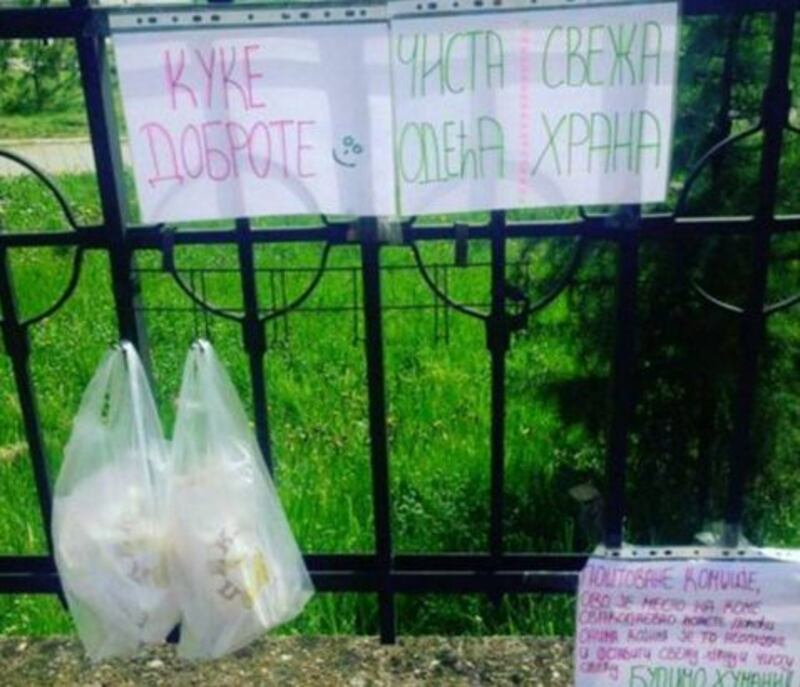 КУКЕ
ДОБРОТЕ
ЧИСТА СВЕЖА
ОДЕЋА ХРАНА
ПОШТОВАНЕ КОМШИЈЕ,
ОВО ЈЕ МЕСТО НА КОМЕ
СВАКОДНЕВНО МОЖЕТЕ ПОМОЋИ
ОНИМА КОЈИМА ЈЕ ТО НЕОПХОДНО
И ОСТАВИТИ СВЕЖУ ХРАНУ И ЧИСТУ
БУДИМО ХУМАНИ!